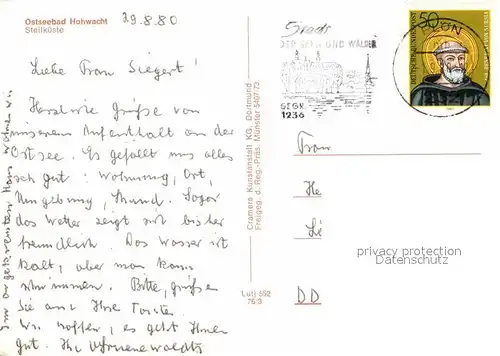 Ostseebad Hohwacht
Steilküste
29.8.80
Liebe Frau Siegert!
Herzliche Grüße von
unserem Aufenthalt an der
Ostsee. Es gefällt uns alles
sehr gut: Wohnung, Ort,
Umgebung, Strand. Sogar
das Wetter zeigt sich bisher
freundlich. Das Wasser ist
kalt, aber man kann
schwimmen. Bitte, grüßen
Sie auch Ihre
Wir hoffen, es geht Ihnen
gut. Ihre
Im angekreuzten Haus wohnen wir
Cramers Kunstanstalt KG, Dortmund
Freigeg. d. Reg.-Präs. Münster 5407/73
Lutj 552
76/3
Stadt
DER SEEN UND WÄLDER
SEIT
1236
PLÖN
50
DEUTSCHE BUNDESPOST
Frau
He
Li
DD
privacy protection
Datenschutz